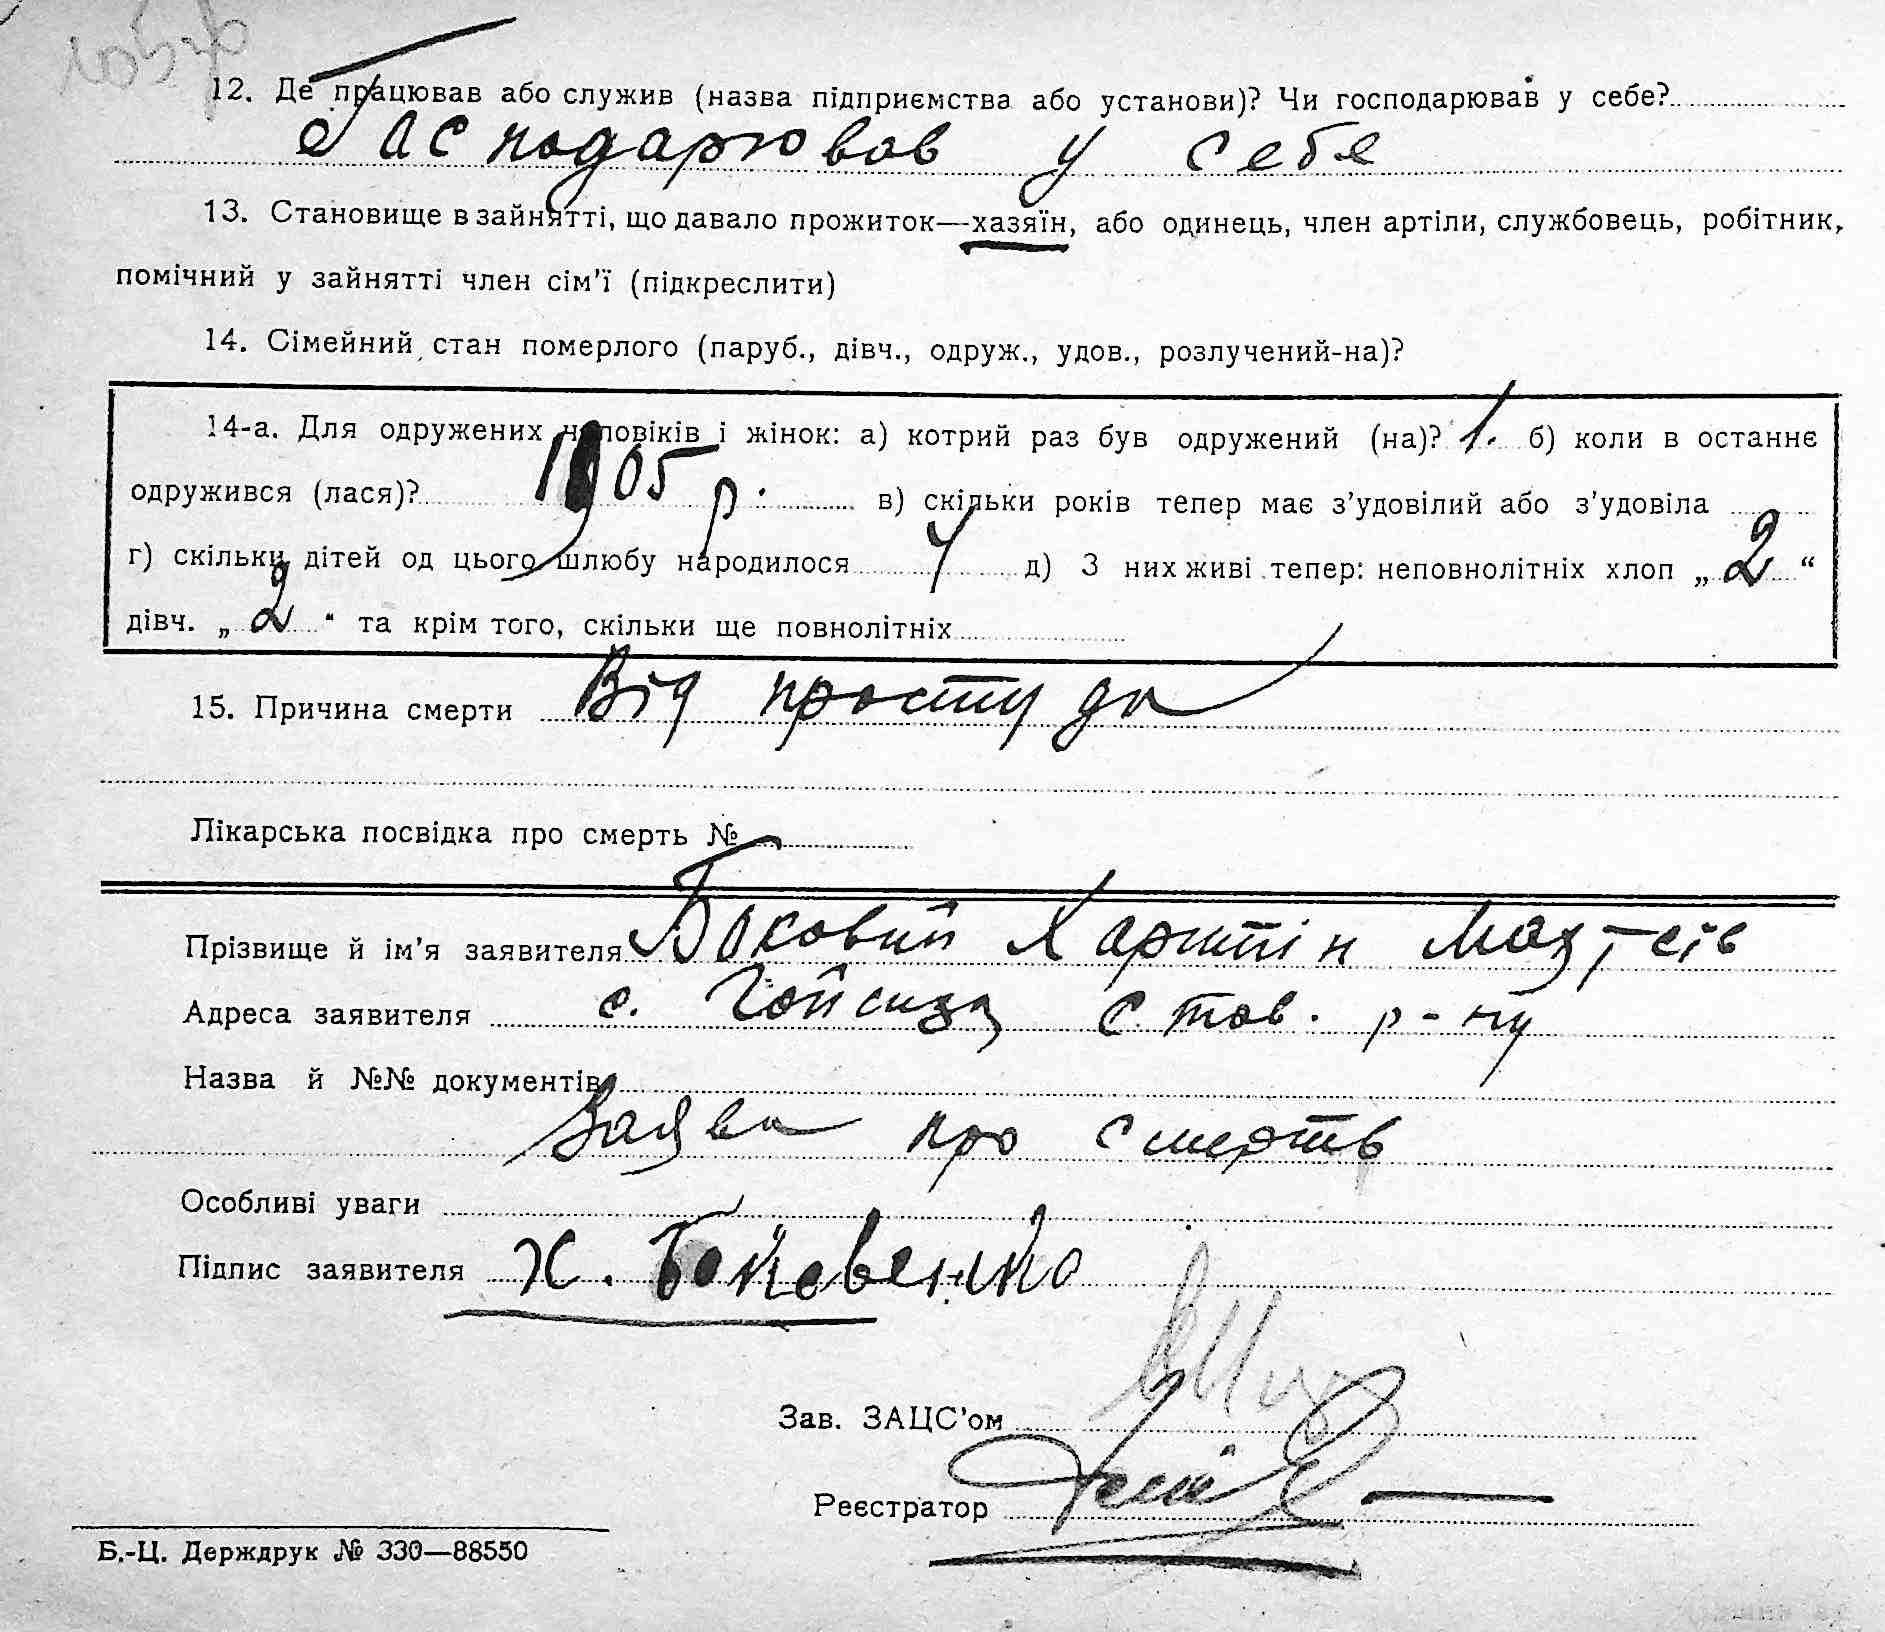 12. Де працював або служив (назва підприємства або установи)? Чи господарював у себе?
Господарював у себе
13. Становище в зайнятті, що давало прожиток—хазяїн, або одинець, член артіли, службовець, робітник,
помічний у зайнятті член сім'ї (підкреслити)
14. Сімейний стан померлого (паруб., дівч., одруж., удов., розлучений-на)?
14-а. Для одружених чоловіків і жінок: а) котрий раз був одружений (на)? 1. б) коли в останнє
одружився (лася)? 1905 р. в) скільки років тепер має з'удовілий або з'удовіла
г) скільки дітей од цього шлюбу народилося 4 д) З них живі тепер: неповнолітніх хлоп „ 2 “
дівч. „ 2 “ та крім того, скільки ще повнолітніх
15. Причина смерти Від простуда
Лікарська посвідка про смерть №
Прізвище й ім'я заявителя Боковий Харитін
Адреса заявителя с. Став. р-ну
Назва й №№ документів
Заява про смерть
Особливі уваги
Підпис заявителя Х.
Зав. ЗАЦС'ом
Реєстратор
Б.-Ц. Держдрук № 330—88550